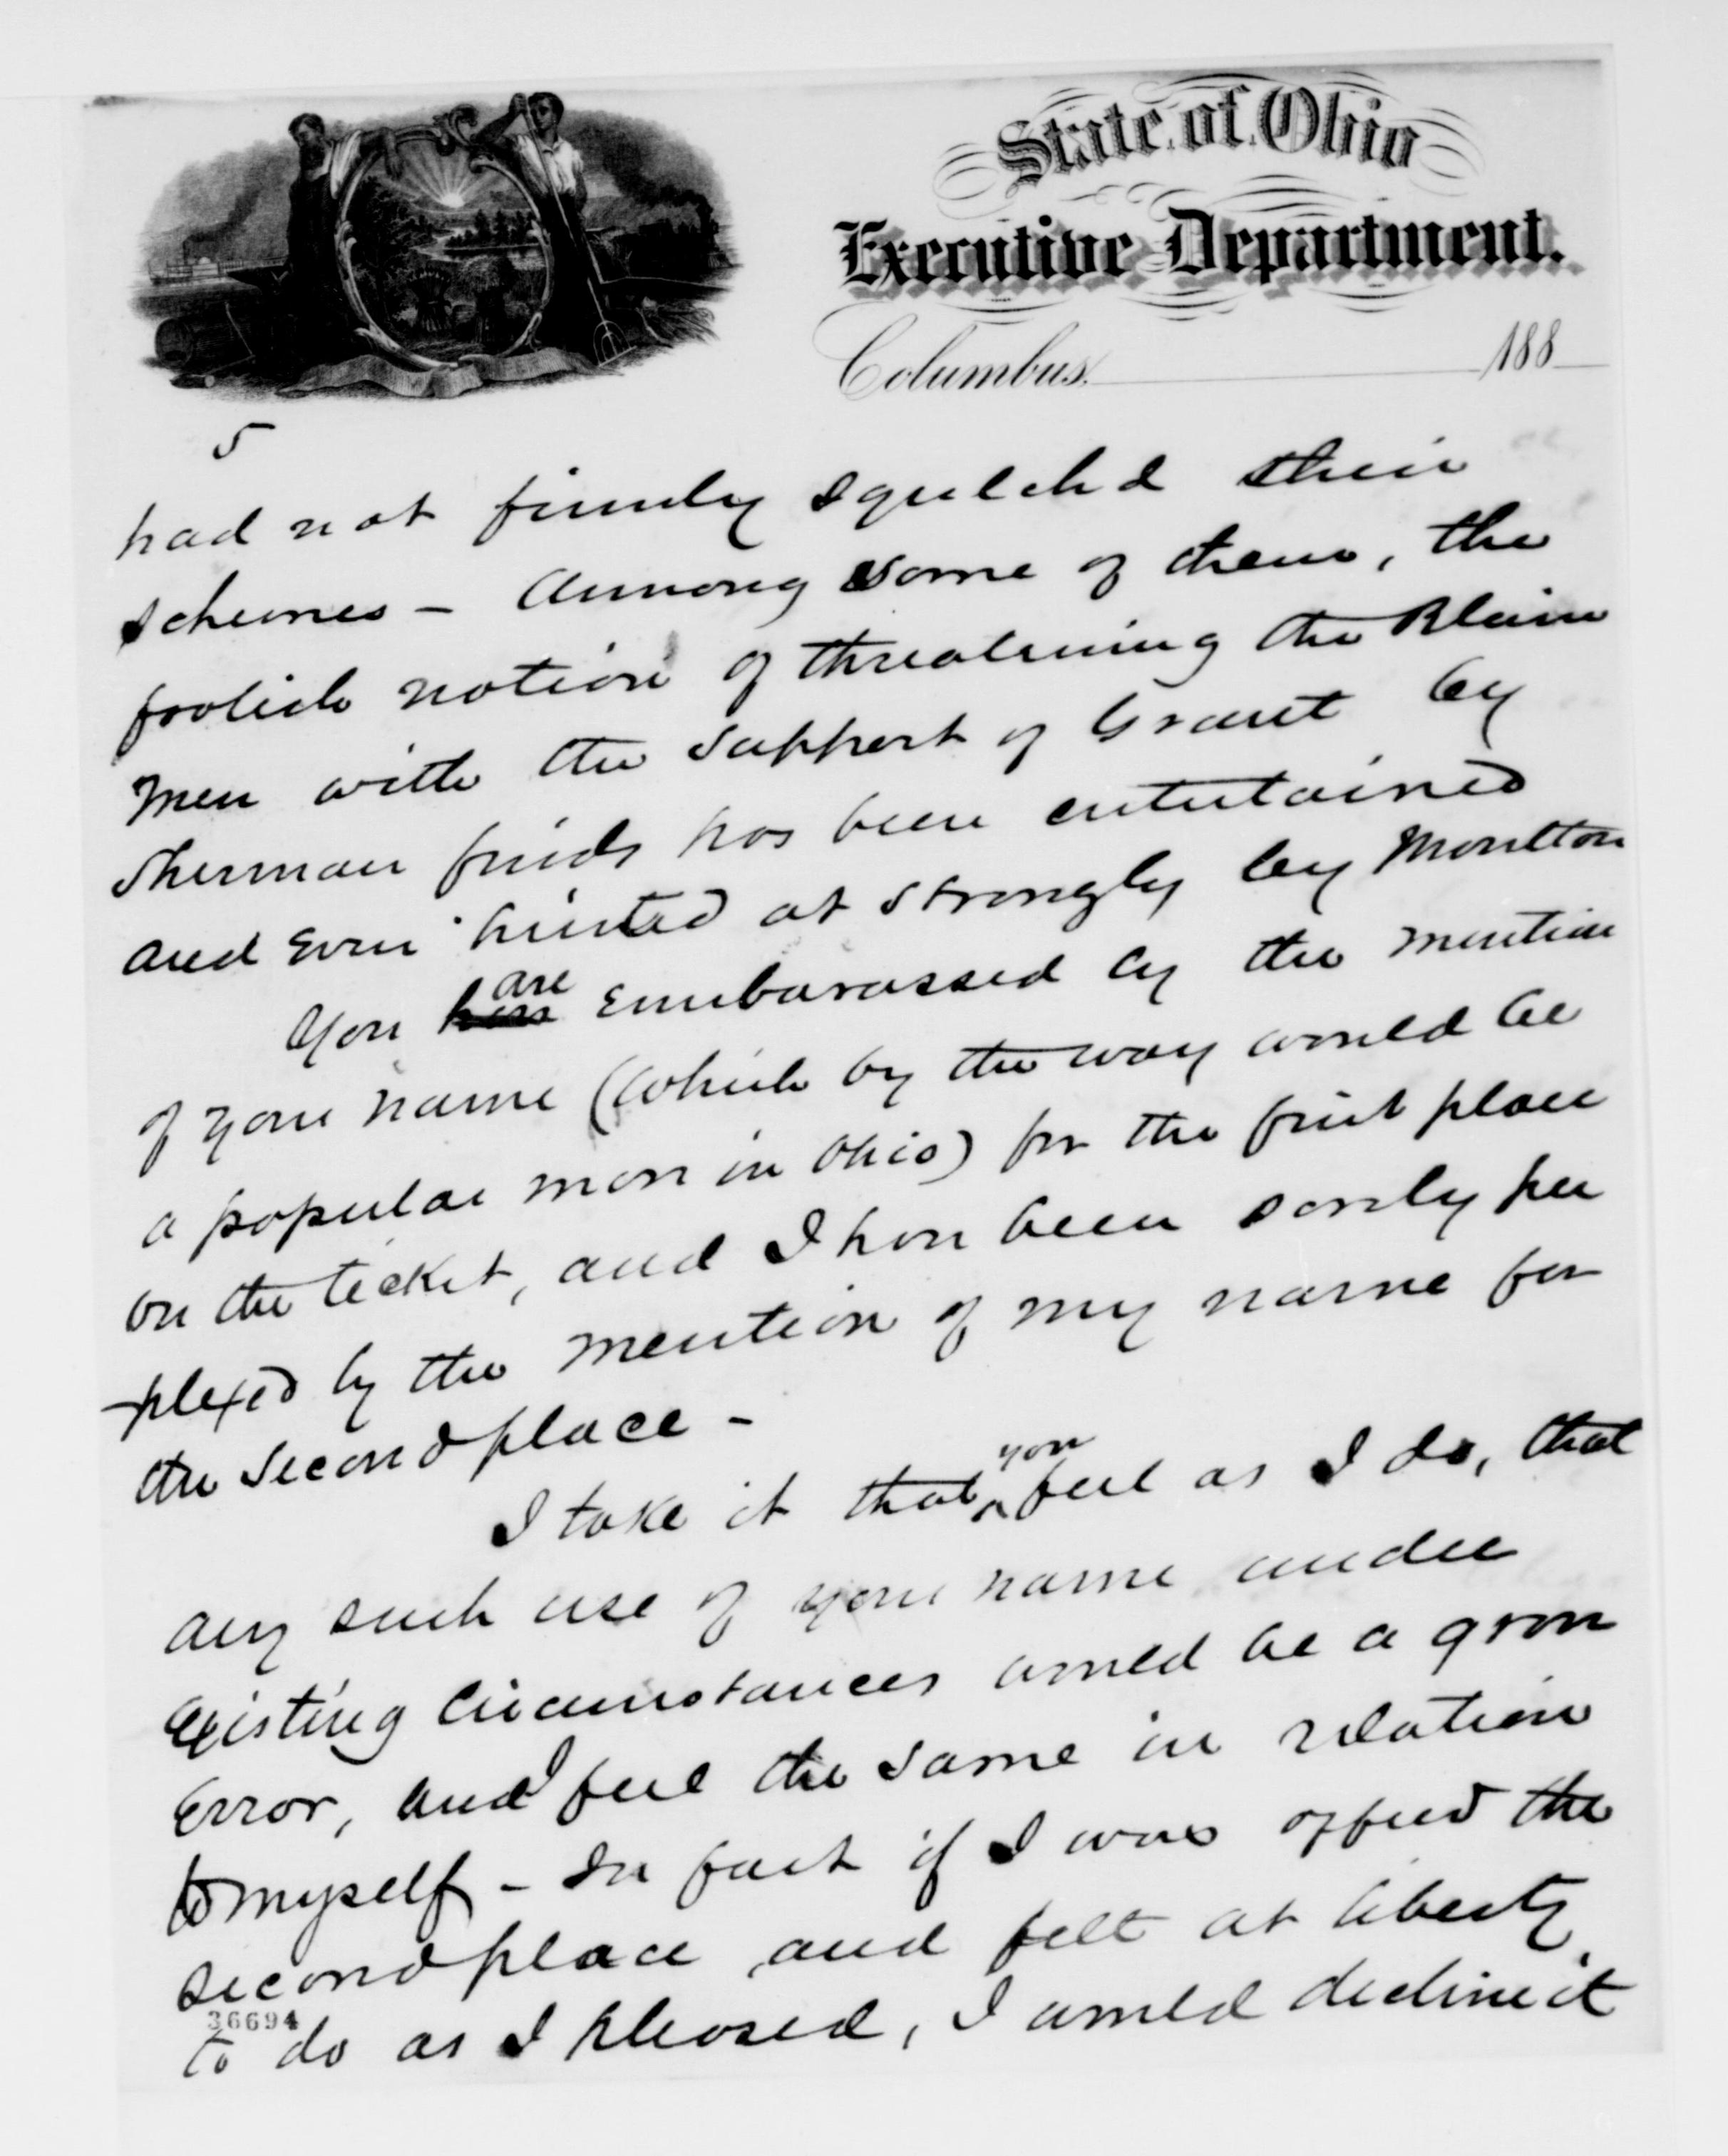 State of Ohio
Executive Department.
Columbus, 188
5
had not firmly squelched their
schemes - Among some of them, the
foolish notion of threatening the Blaine
men with the support of Grant by
Sherman friends has been entertained
and even hinted at strongly by Moulton
You are embarassed by the mention
of your name (which by the way would be
a popular move in Ohio) for the first place
on the ticket, and I have been sorely per
-plexed by the mention of my name for
the second place -
I take it that you feel as I do, that
any such use of your name under
existing circumstances would be a grave
error, and I feel the same in relation
to myself - In fact if I was offered the
second place, and felt at liberty
36694
to do as I pleased, I would decline it